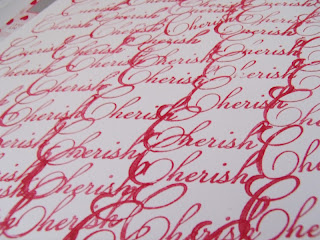 Cherish Cherish
Cherish Cherish Cherish
Cherish Cherish Cherish
Cherish Cherish Cherish Cherish
Cherish Cherish Cherish Cherish
Cherish Cherish Cherish Cherish
Cherish Cherish Cherish Cherish
Cherish Cherish Cherish
Cherish Cherish Cherish
Cherish Cherish Cherish
Cherish Cherish Cherish